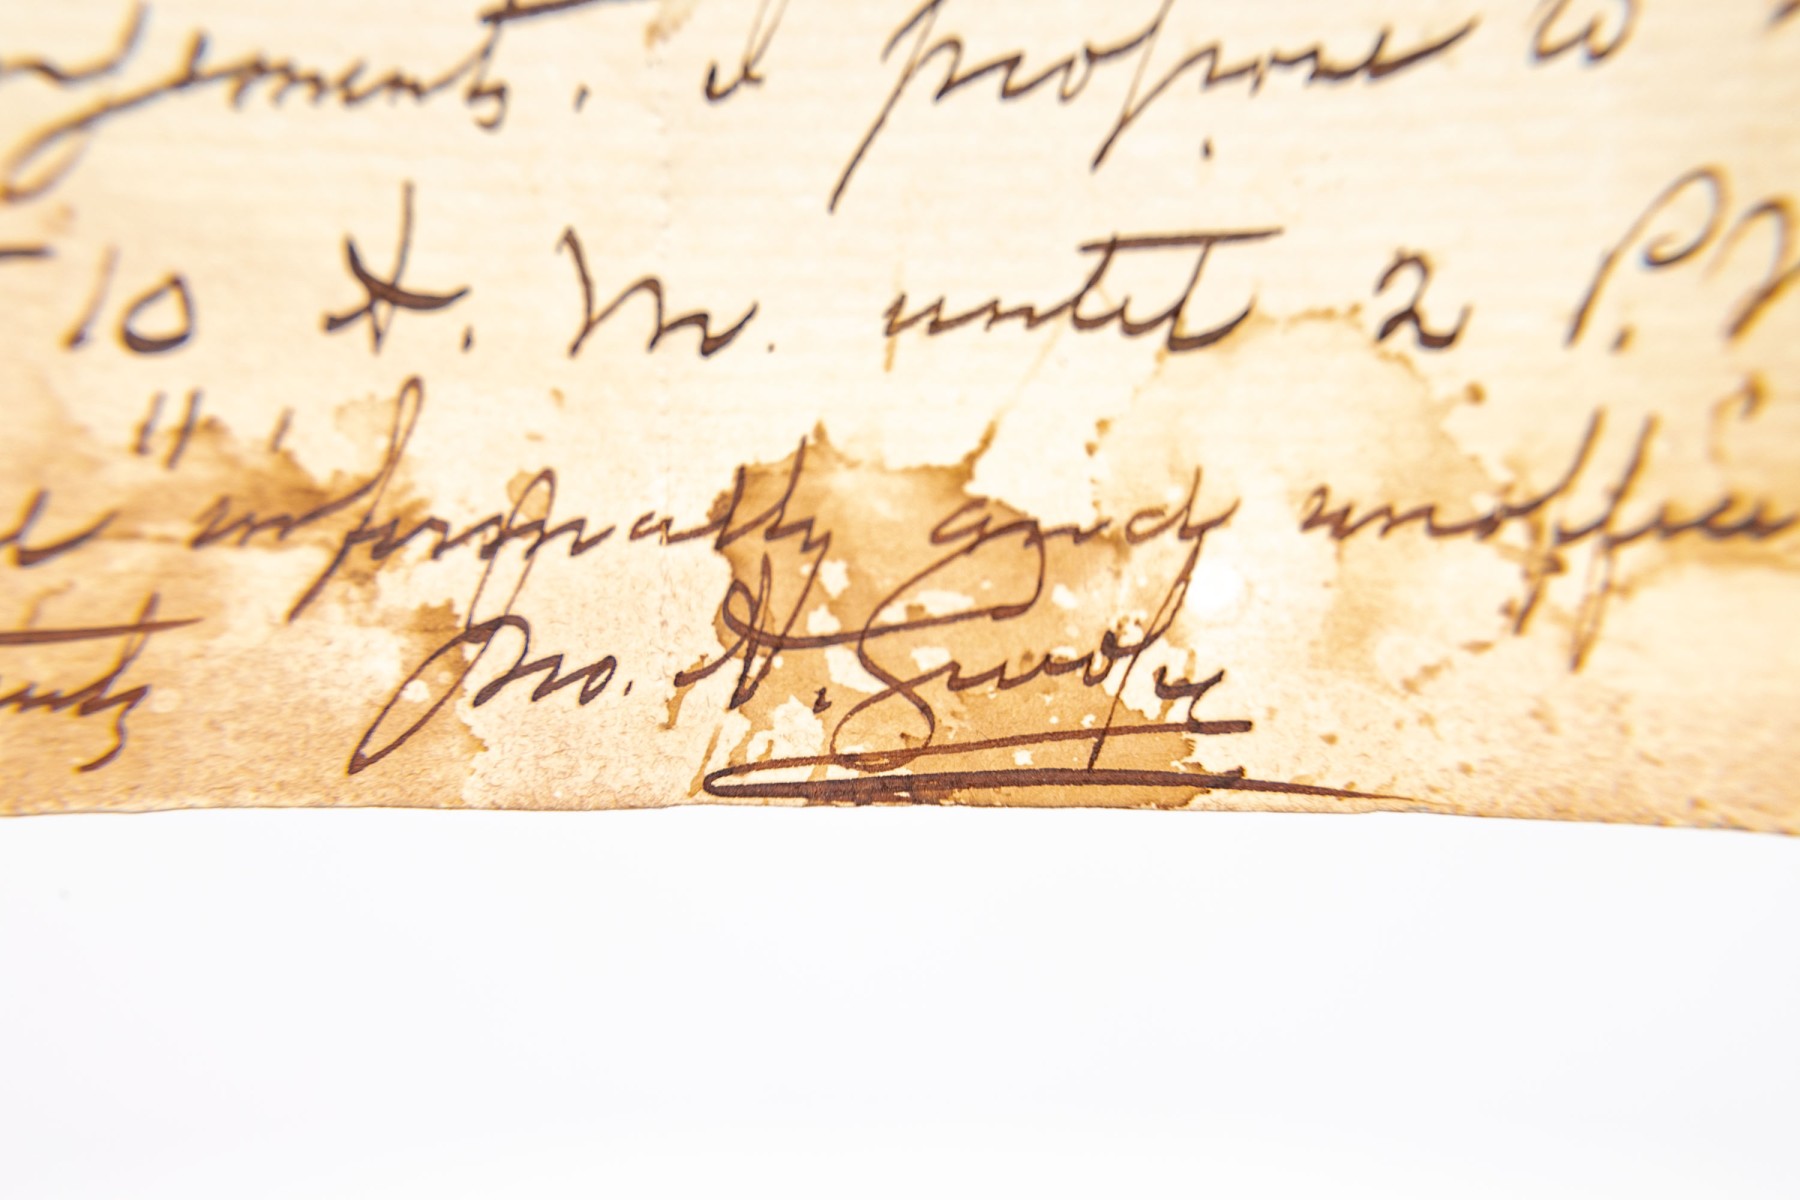 gements. I propose to
10 A. M. until 2 P. M
informally and unoffici
Jno. A.